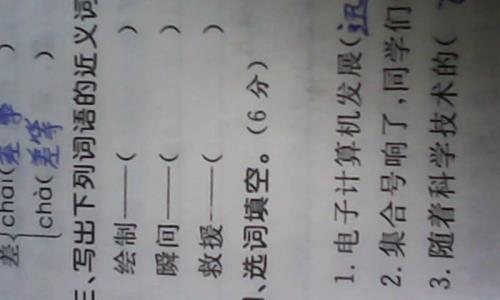 差 chāi(差事 )
chà(差等 )
三、写出下列词语的近义词
绘制——( )
瞬间——( )
救援——( )
、选词填空。(6分)
1. 电子计算机发展(迅
2. 集合号响了,同学们
3. 随着科学技术的(